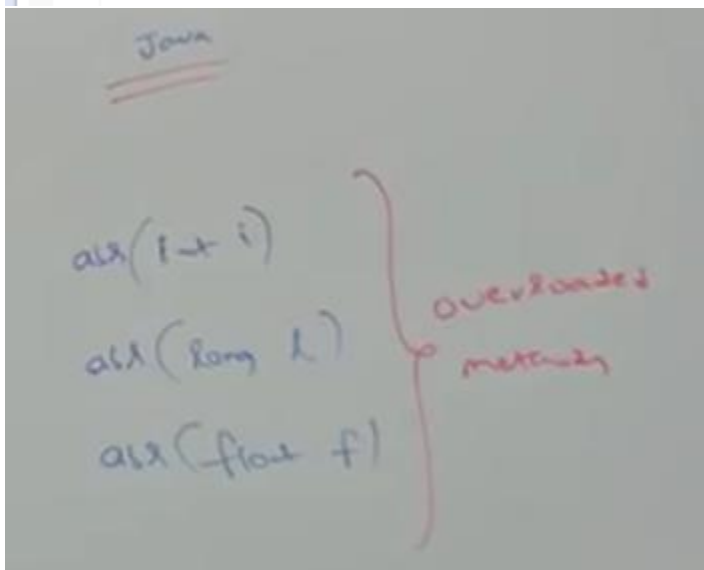 Java
abs(int i)
abs(long l)
abs(float f)
overloaded
methods